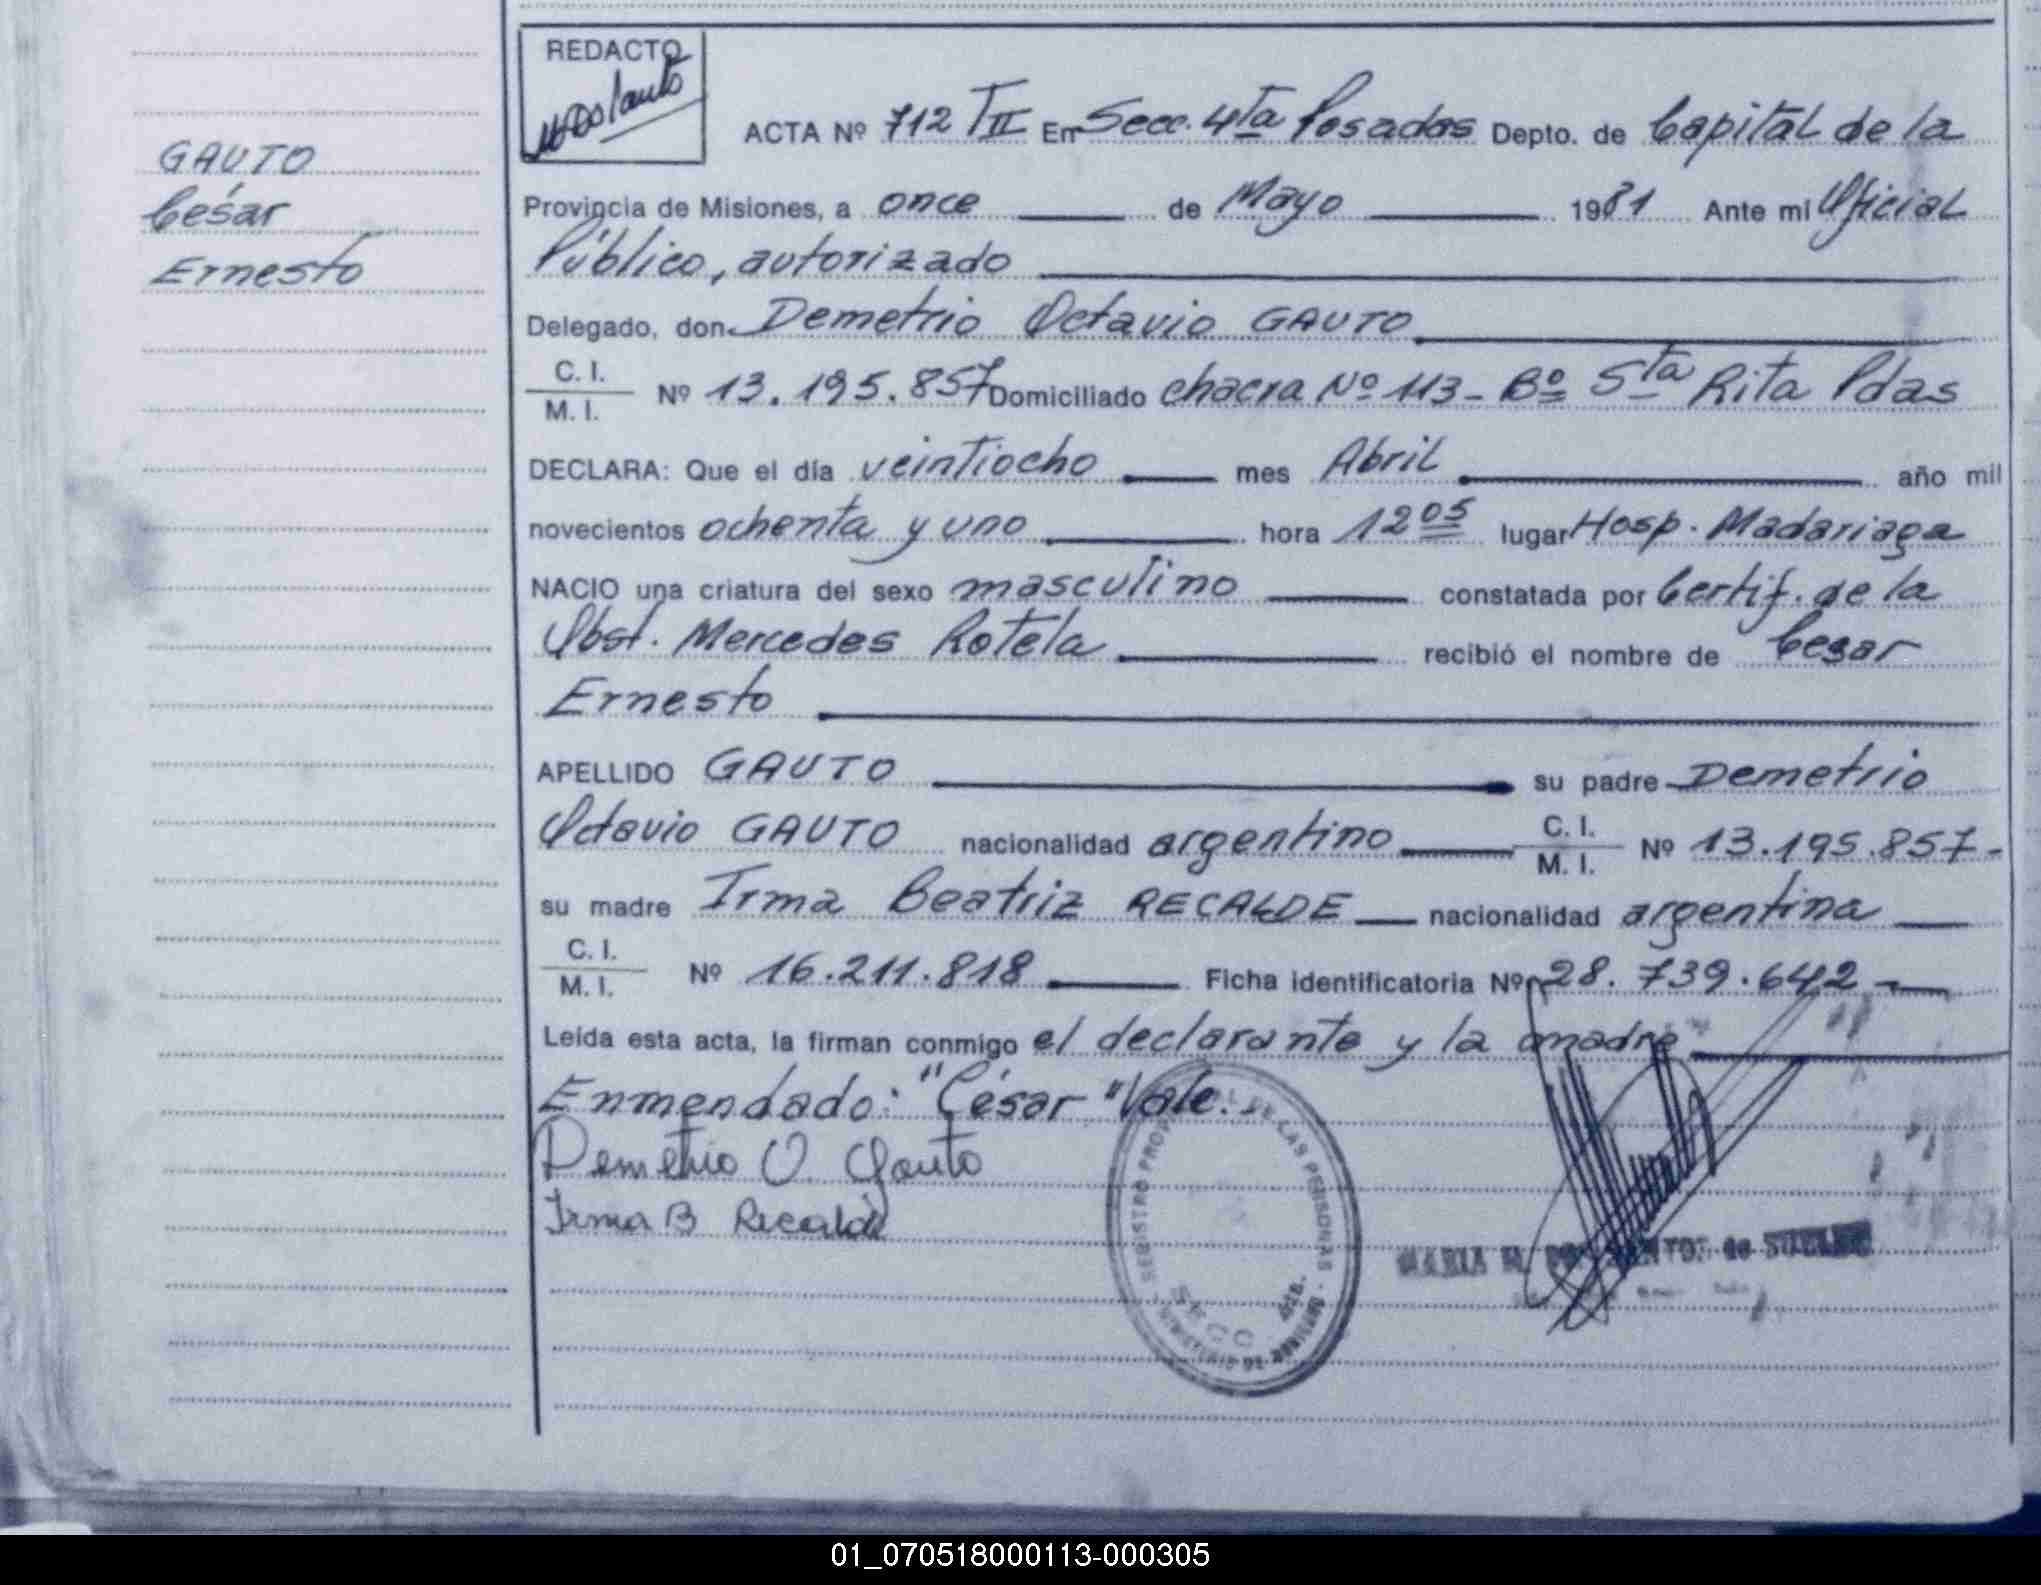 GAUTO
César
Ernesto
REDACTO
ACTA Nº 712 TII En Secc. 4ta Posadas Depto. de Capital de la
Provincia de Misiones, a once de Mayo 1981 Ante mi Oficial
Público, autorizado
Delegado, don Demetrio Octavio GAUTO
C. I.
M. I. Nº 13.195.857 Domiciliado chacra Nº 113 - Bº Sta Rita Pdas
DECLARA: Que el día veintiocho mes Abril año mil
novecientos ochenta y uno hora 12 05 lugar Hosp. Madariaga
NACIO una criatura del sexo masculino constatada por Certif. de la
Obst. Mercedes Rotela recibió el nombre de Cesar
Ernesto
APELLIDO GAUTO su padre Demetrio
Octavio GAUTO nacionalidad argentino C. I. M. I. Nº 13.195.857-
su madre Irma Beatriz RECALDE nacionalidad argentina
C. I.
M. I. Nº 16.211.818 Ficha identificatoria Nº 28.739.642
Leída esta acta, la firman conmigo el declarante y la madre
Enmendado: "César" Vale.
Demetrio O. Gauto
Irma B Recalde
REGISTRO PROV DE LAS PERSONAS
MINISTERIO DE
SECC 4ta.
MARIA M. DOS SANTOS de
01_070518000113-000305